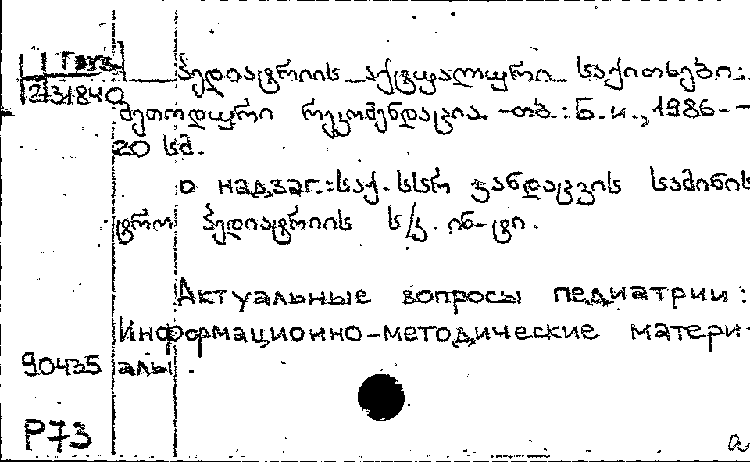 Груз.
2131840
პედიატრიის აქტუალური საკითხები:
მეთოდური რეკომენდაცია. -თბ.: Б.и., 1986.-
20 სმ.
В надзаг.: საქ. სსრ ჯანდაცვის სამინის
ტრო პედიატრიის ს/კ. ინ-ტი.
Актуальные вопросы педиатрии:
Информационно-методические матери-
90435 алы.
Р73